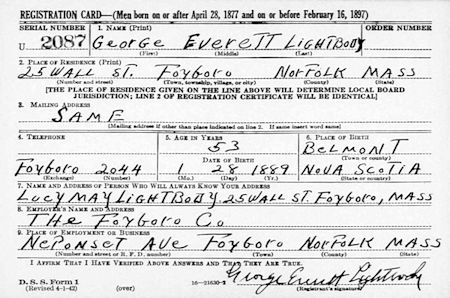 REGISTRATION CARD—(Men born on or after April 28, 1877 and on or before February 16, 1897)
SERIAL NUMBER 1. NAME (Print) ORDER NUMBER
U 2087 George Everett Lightbody
(First) (Middle) (Last)
2. PLACE OF RESIDENCE (Print)
25 Wall St. Foxboro Norfolk Mass
(Number and street) (Town, township, village, or city) (County) (State)
[THE PLACE OF RESIDENCE GIVEN ON THE LINE ABOVE WILL DETERMINE LOCAL BOARD
JURISDICTION; LINE 2 OF REGISTRATION CERTIFICATE WILL BE IDENTICAL]
3. MAILING ADDRESS
Same
[Mailing address if other than place indicated on line 2. If same insert word same]
4. TELEPHONE 5. AGE IN YEARS 6. PLACE OF BIRTH
53 Belmont
DATE OF BIRTH (Town or county)
Foxboro 2044 1 28 1889 Nova Scotia
(Exchange) (Number) (Mo.) (Day) (Yr.) (State or country)
7. NAME AND ADDRESS OF PERSON WHO WILL ALWAYS KNOW YOUR ADDRESS
Lucy May Lightbody 25 Wall St. Foxboro, Mass
8. EMPLOYER'S NAME AND ADDRESS
The Foxboro Co
9. PLACE OF EMPLOYMENT OR BUSINESS
Neponset Ave Foxboro Norfolk Mass
(Number and street or R. F. D. number) (Town) (County) (State)
I AFFIRM THAT I HAVE VERIFIED ABOVE ANSWERS AND THAT THEY ARE TRUE.
D. S. S. Form 1
(Revised 4-1-42) (over) 16—21630-2 George Everett Lightbody
(Registrant's signature)